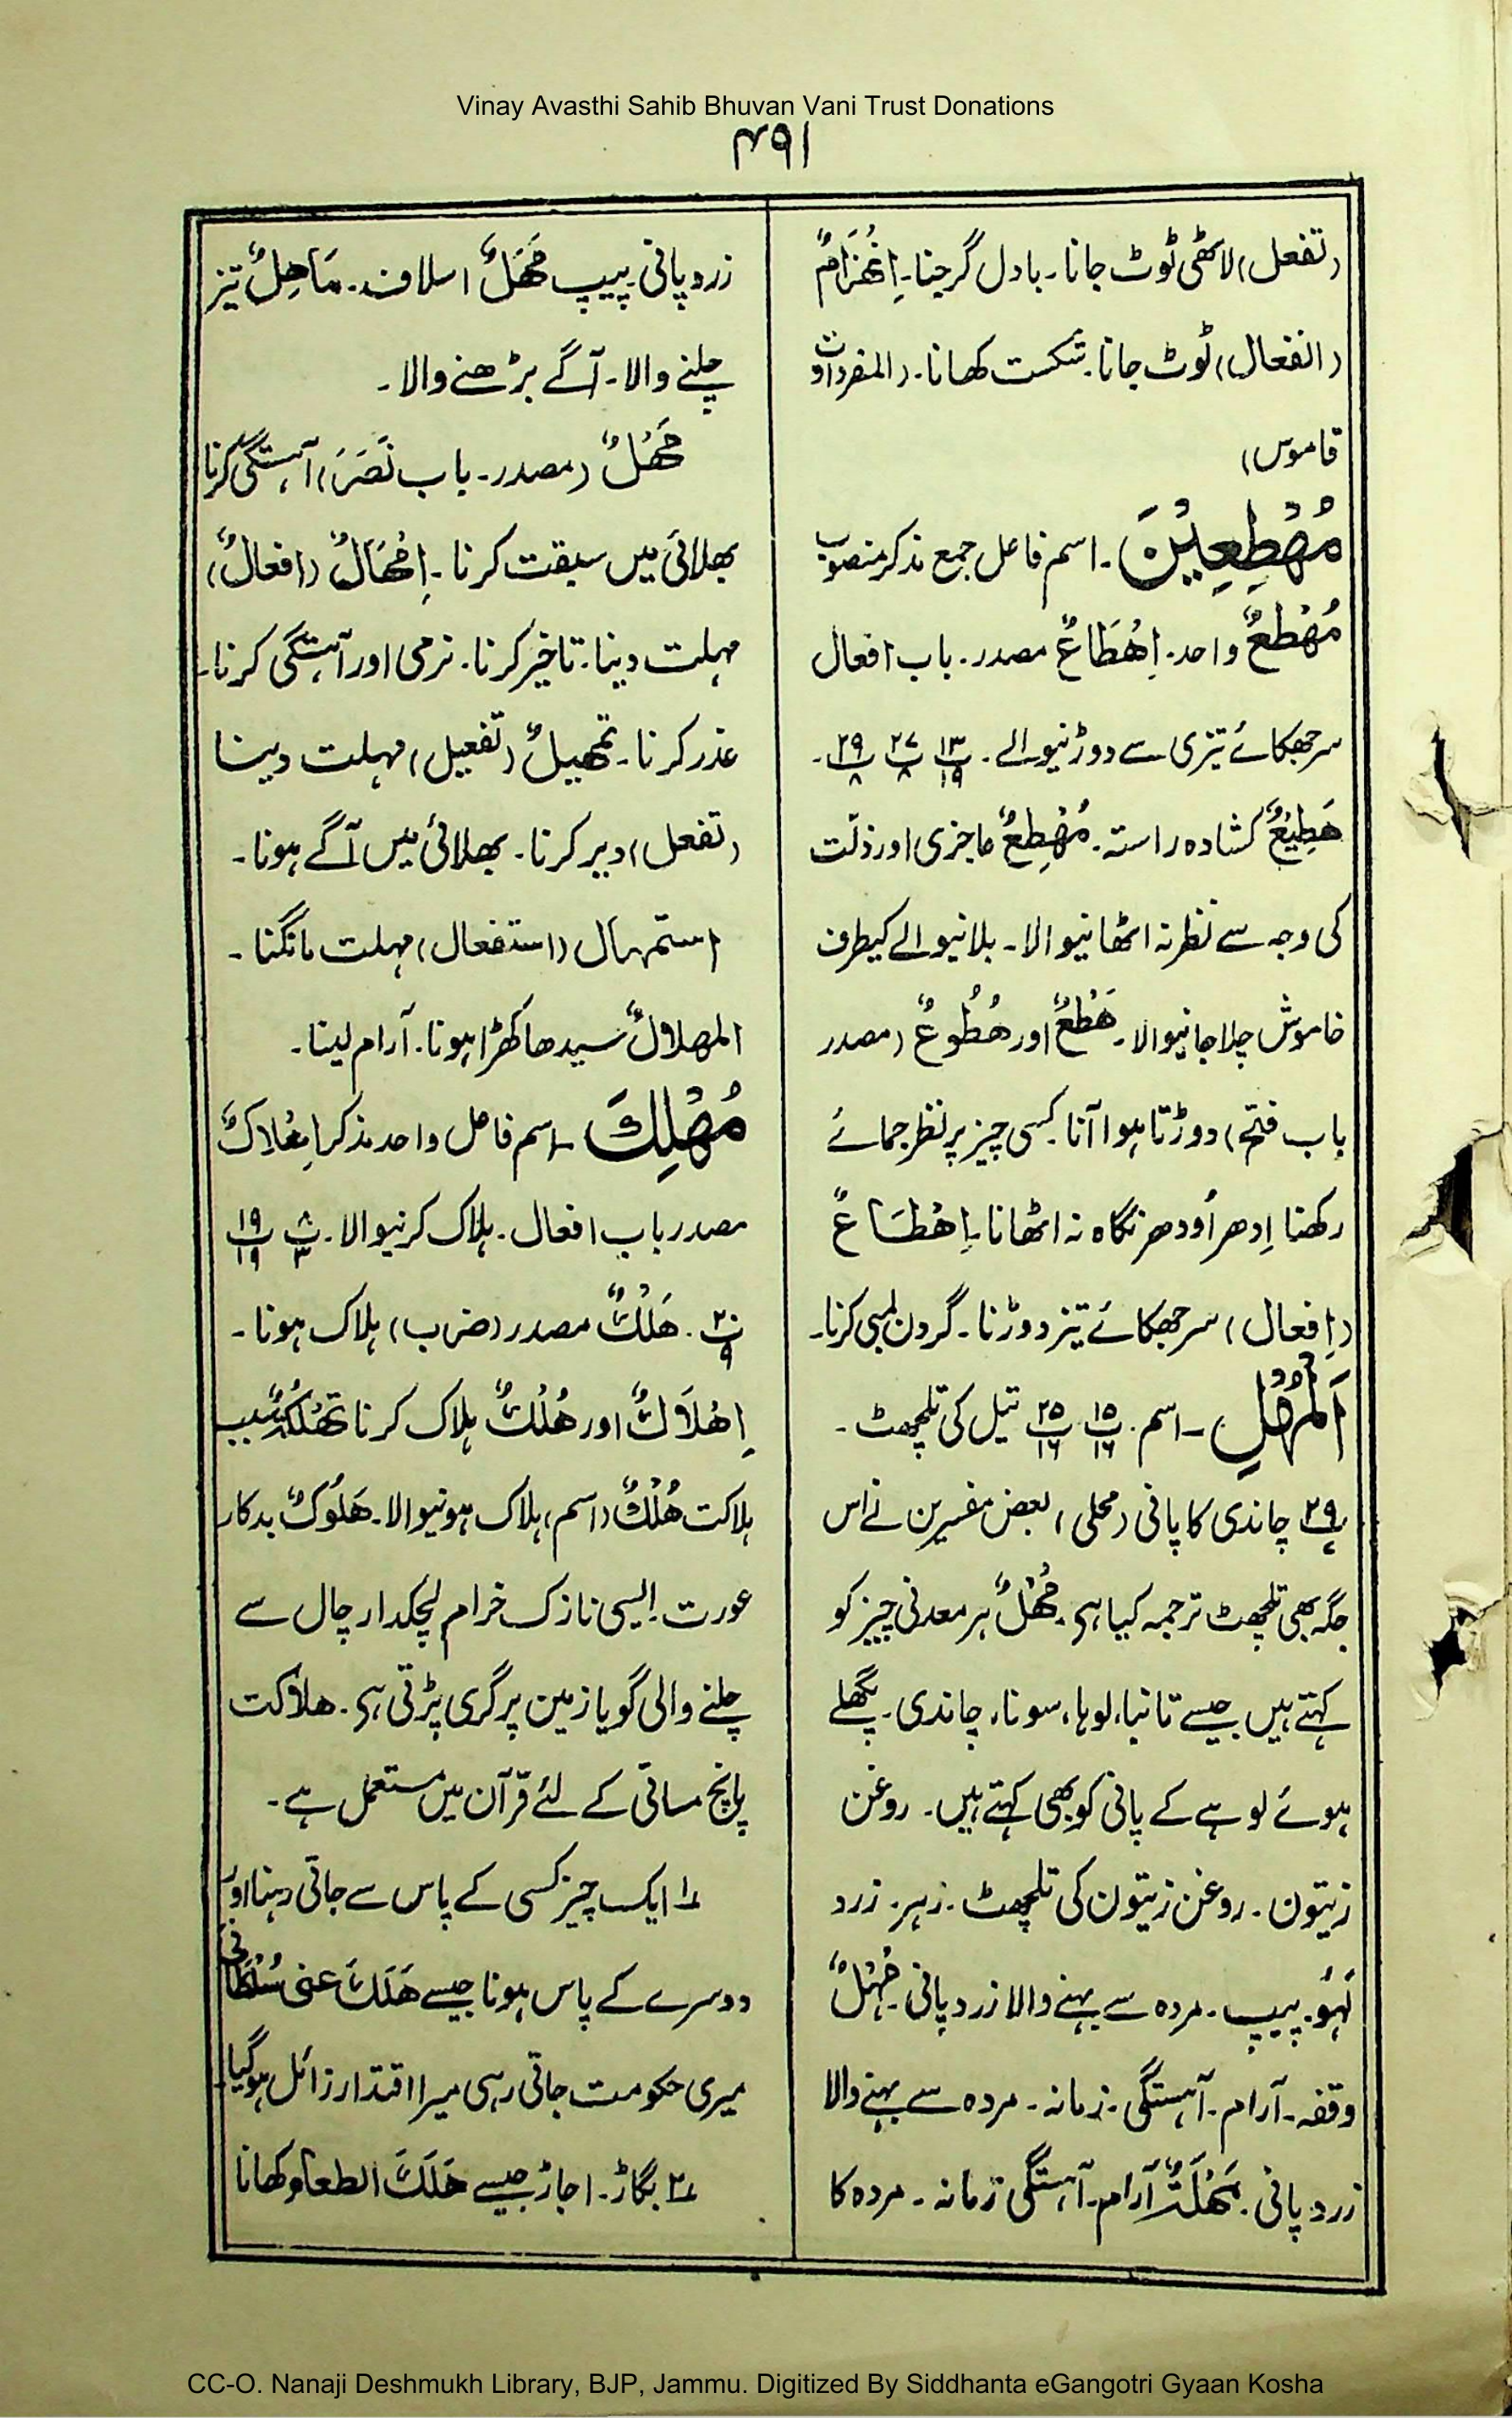 Vinay Avasthi Sahib Bhuvan Vani Trust Donations
۴۹۱
(تفعل) لاٹھی ٹوٹ جانا۔ بادل گرجنا۔ اِنْھِزَامٌ
(انفعال) ٹوٹ جانا۔ شکست کھانا۔ (المفردات و
قاموس)
مُهْطِعِيْنَ۔ اسم فاعل جمع مذکر منصوب
مُهْطِعٌ واحد۔ اِهْطَاعٌ مصدر۔ باب افعال
سر جھکائے تیزی سے دوڑنیوالے۔ پ۱۳/۱۹ پ۲۷/۸ پ۲۹/۸۔
هَطِيْعٌ کشادہ راستہ۔ مُهْطِعٌ عاجزی اور ذلّت
کی وجہ سے نظر نہ اٹھانیوالا۔ بلانیوالے کیطرف
خاموش چلا جانیوالا۔ هَطْعٌ اور هُطُوعٌ (مصدر
باب فتح) دوڑتا ہوا آنا۔ کسی چیز پر نظر جمائے
رکھنا اِدھر اُودھر نگاہ نہ اٹھانا۔ اِهْطَاعٌ
(اِفعال) سر جھکائے تیز دوڑنا۔ گردن لمبی کرنا۔
اَلْمُهْلِ۔ اسم۔ پ۱۵/۱۶ پ۲۵/۱۶ تیل کی تلچھٹ۔
پ۲۹/۷ چاندی کا پانی (محلی) بعض مفسرین نے اس
جگہ بھی تلچھٹ ترجمہ کیا ہی۔ مُهْلٌ ہر معدنی چیز کو
کہتے ہیں جیسے تانبا، لوہا، سونا، چاندی۔ پگھلے
ہوئے لوہے کے پانی کو بھی کہتے ہیں۔ روغن
زیتون۔ روغن زیتون کی تلچھٹ۔ زہر۔ زرد
لَہُو۔ پیپ۔ مردہ سے بہنے والا زرد پانی۔ مَهْلٌ
وقفہ۔ آرام۔ آہستگی۔ زمانہ۔ مردہ سے بہنے والا
زرد پانی۔ مَهْلَةٌ آرام۔ آہستگی زمانہ۔ مردہ کا
زرد پانی۔ پیپ مَهَلٌ اسلاف۔ مَاهِلٌ تیز
چلنے والا۔ آگے بڑھنے والا۔
مَهْلٌ (مصدر۔ باب نَصَرَ) آہستگی کرنا
بھلائی میں سبقت کرنا۔ اِمْهَالٌ (افعالٌ)
مہلت دینا۔ تاخیر کرنا۔ نرمی اور آہستگی کرنا۔
عذر کرنا۔ تمھیلٌ (تفعیل) مہلت دینا
(تفعل) دیر کرنا۔ بھلائی میں آگے ہونا۔
استمہال (استفعال) مہلت مانگنا۔
المهلالٌ سیدھا کھڑا ہونا۔ آرام لینا۔
مُهْلِكَ۔ اسم فاعل واحد مذکر اِهْلَاكٌ
مصدر باب افعال۔ ہلاک کرنیوالا۔ پ۸/۳ پ۱۹/۱۹
پ۲۰/۹۔ هَلْكٌ مصدر (ضرب) ہلاک ہونا۔
اِهْلَاكٌ اور هُلْكٌ ہلاک کرنا تَهْلُكَةٌ سبب
ہلاکت هُلْكٌ (اسم) ہلاک ہونیوالا۔ هَلُوكٌ بدکار
عورت۔ ایسی نازک خرام لچکدار چال سے
چلنے والی گویا زمین پر گری پڑتی ہی۔ هلاکت
پانچ معانی کے لئے قرآن میں مستعمل ہے۔
۱؎ ایک چیز کسی کے پاس سے جاتی رہنا اور
دوسرے کے پاس ہونا جیسے هَلَكَ عنی سُلْطَانِی
میری حکومت جاتی رہی میرا اقتدار زائل ہو گیا۔
۲؎ بگاڑ۔ اجاڑ جیسے هَلَكَ الطعام کھانا
CC-O. Nanaji Deshmukh Library, BJP, Jammu. Digitized By Siddhanta eGangotri Gyaan Kosha